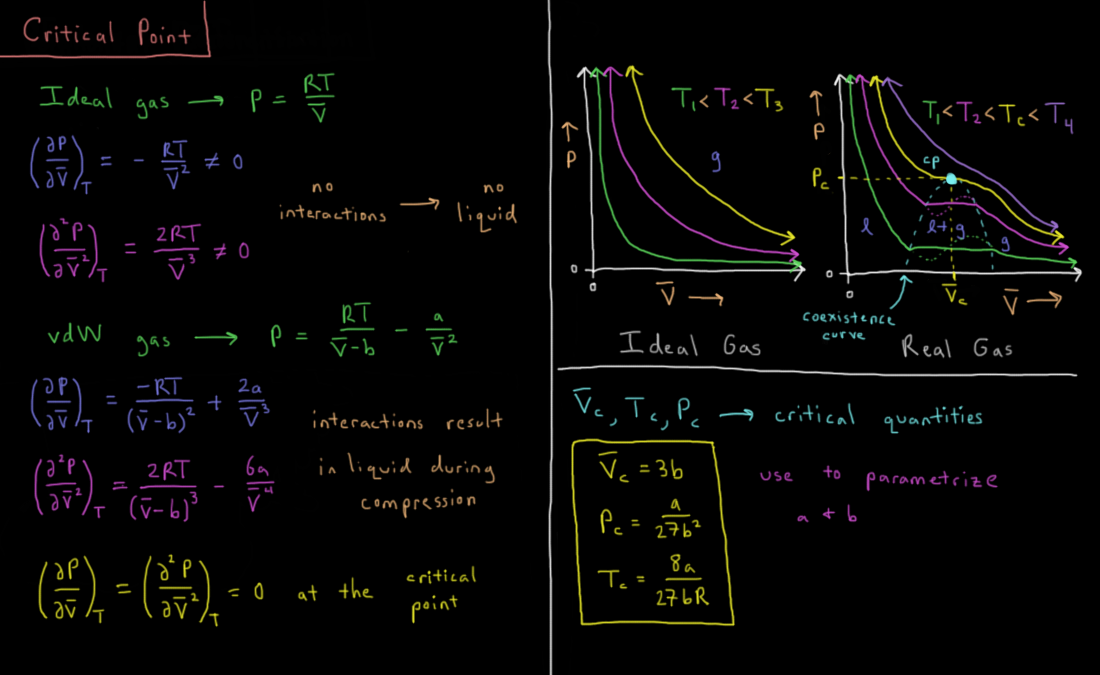 Critical Point
Ideal gas → P = RT/V̅
(∂P/∂V̅)_T = - RT/V̅² ≠ 0
no interactions → no liquid
(∂²P/∂V̅²)_T = 2RT/V̅³ ≠ 0
vdW gas → P = RT/(V̅-b) - a/V̅²
(∂P/∂V̅)_T = -RT/(V̅-b)² + 2a/V̅³
(∂²P/∂V̅²)_T = 2RT/(V̅-b)³ - 6a/V̅⁴
interactions result
in liquid during
compression
(∂P/∂V̅)_T = (∂²P/∂V̅²)_T = 0 at the critical point
T₁ < T₂ < T₃
↑
P
g
0
0
V̅ →
Ideal Gas
T₁ < T₂ < T_c < T₄
↑
P
P_c
cp
l
l+g
g
0
0
V̅_c
V̅ →
coexistence
curve
Real Gas
V̅_c, T_c, P_c → critical quantities
V̅_c = 3b
P_c = a/27b²
T_c = 8a/27bR
use to parametrize
a + b